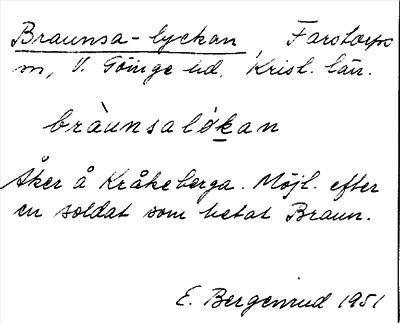 Braunsa-lyckan Farstorps
sn, V. Göinge hd, Krist. län.
bràunsalỳkan
Åker å Kråkeberga. Möjl. efter
en soldat som hetat Braun.
E. Bergenrud 1951